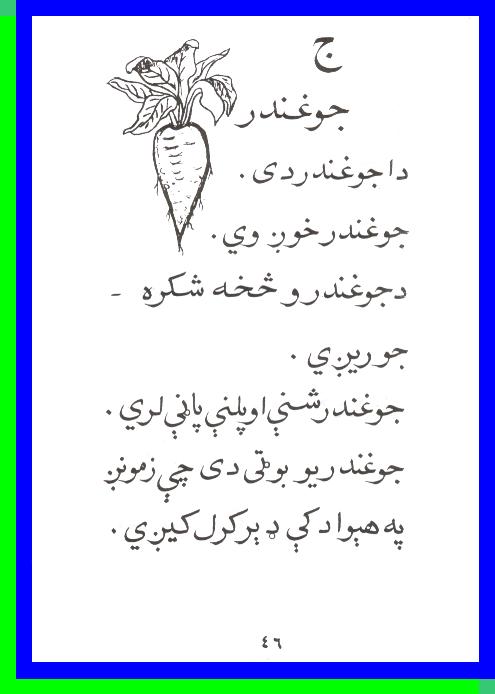 ج
جوغندر
دا جوغندر دی .
جوغندر خوږ وي .
د جوغندرو څخه شکره -
جوړيږي .
جوغندر شنې او پلنې پاڼې لري .
جوغندر يو بوټی دی چې زمونږ
په هېواد کې ډېر کرل کيږي .
٤٦